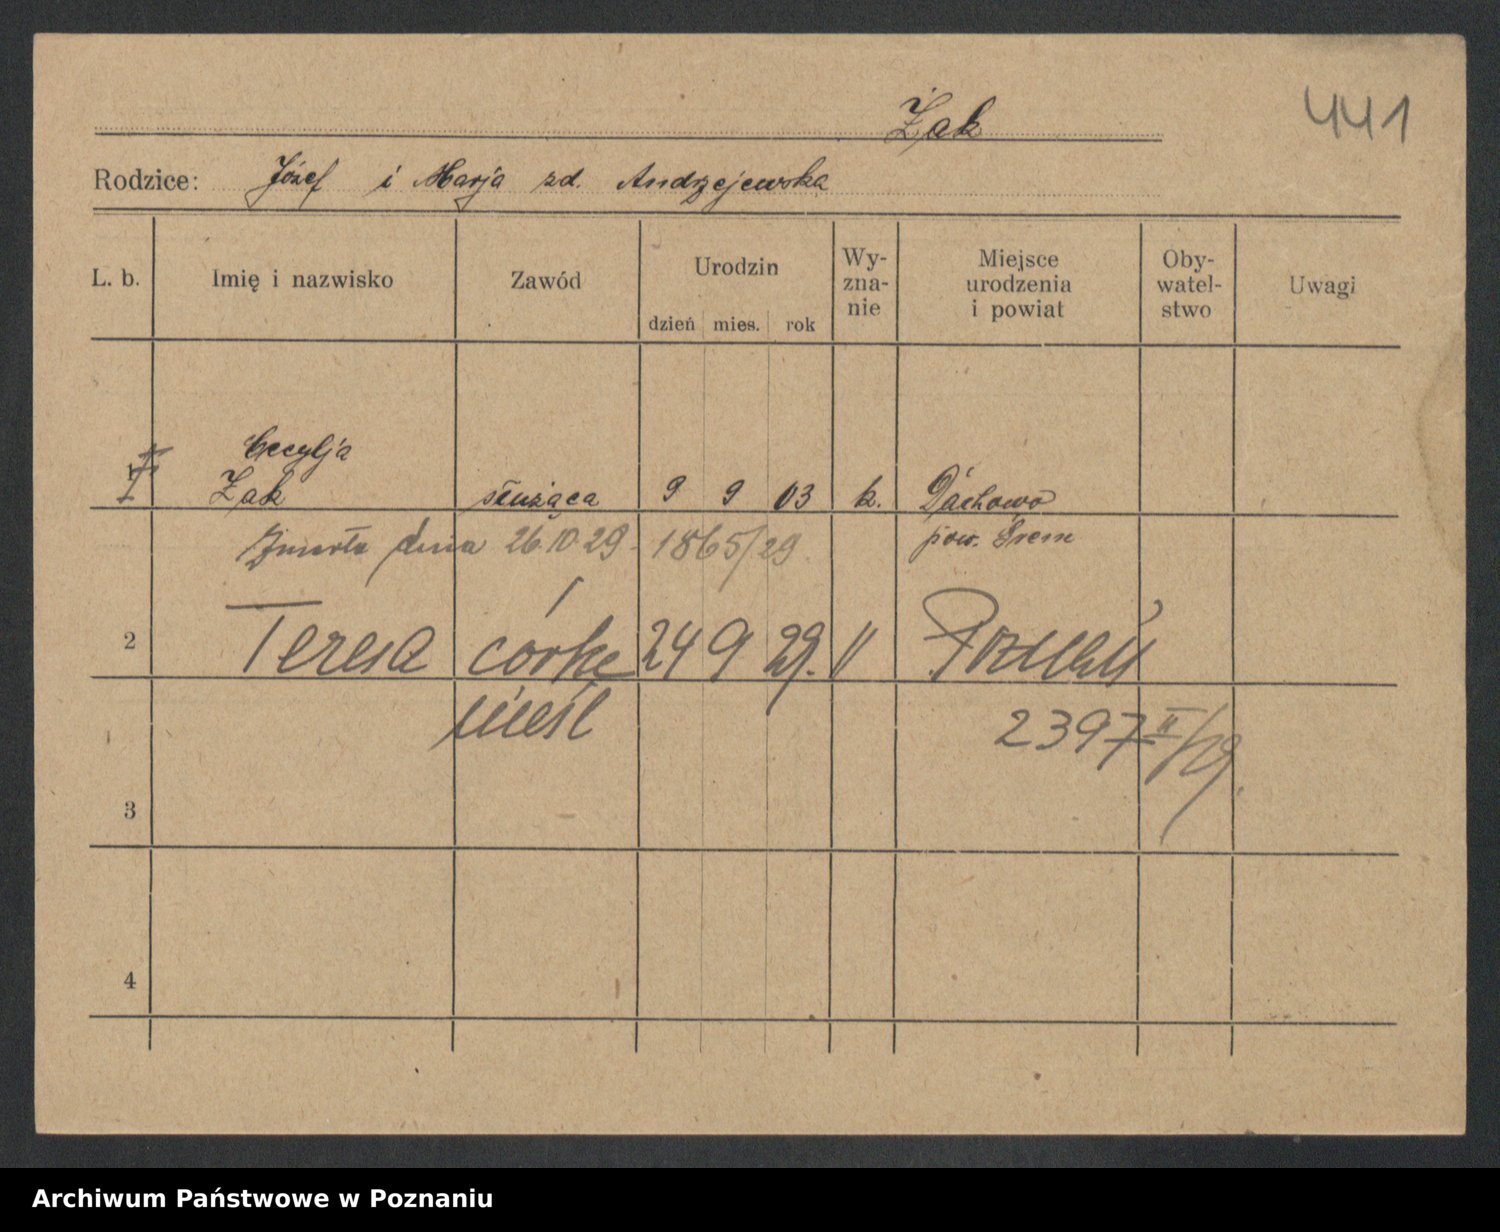 Żak
441
Rodzice: Józef i Marja zd. Andrzejewska
L. b. Imię i nazwisko Zawód Urodzin Wy- Miejsce Oby- Uwagi
zna- urodzenia watel-
dzień mies. rok nie i powiat stwo
Cecylja
1 Żak służąca 9 9 03 k. Dachowo
Zmarła dnia 26.10.29 1865/29 pow. Śrem
2 Teresa córka 24 9 29. " Poznań
nieśl 2397 II/29.
3
4
Archiwum Państwowe w Poznaniu